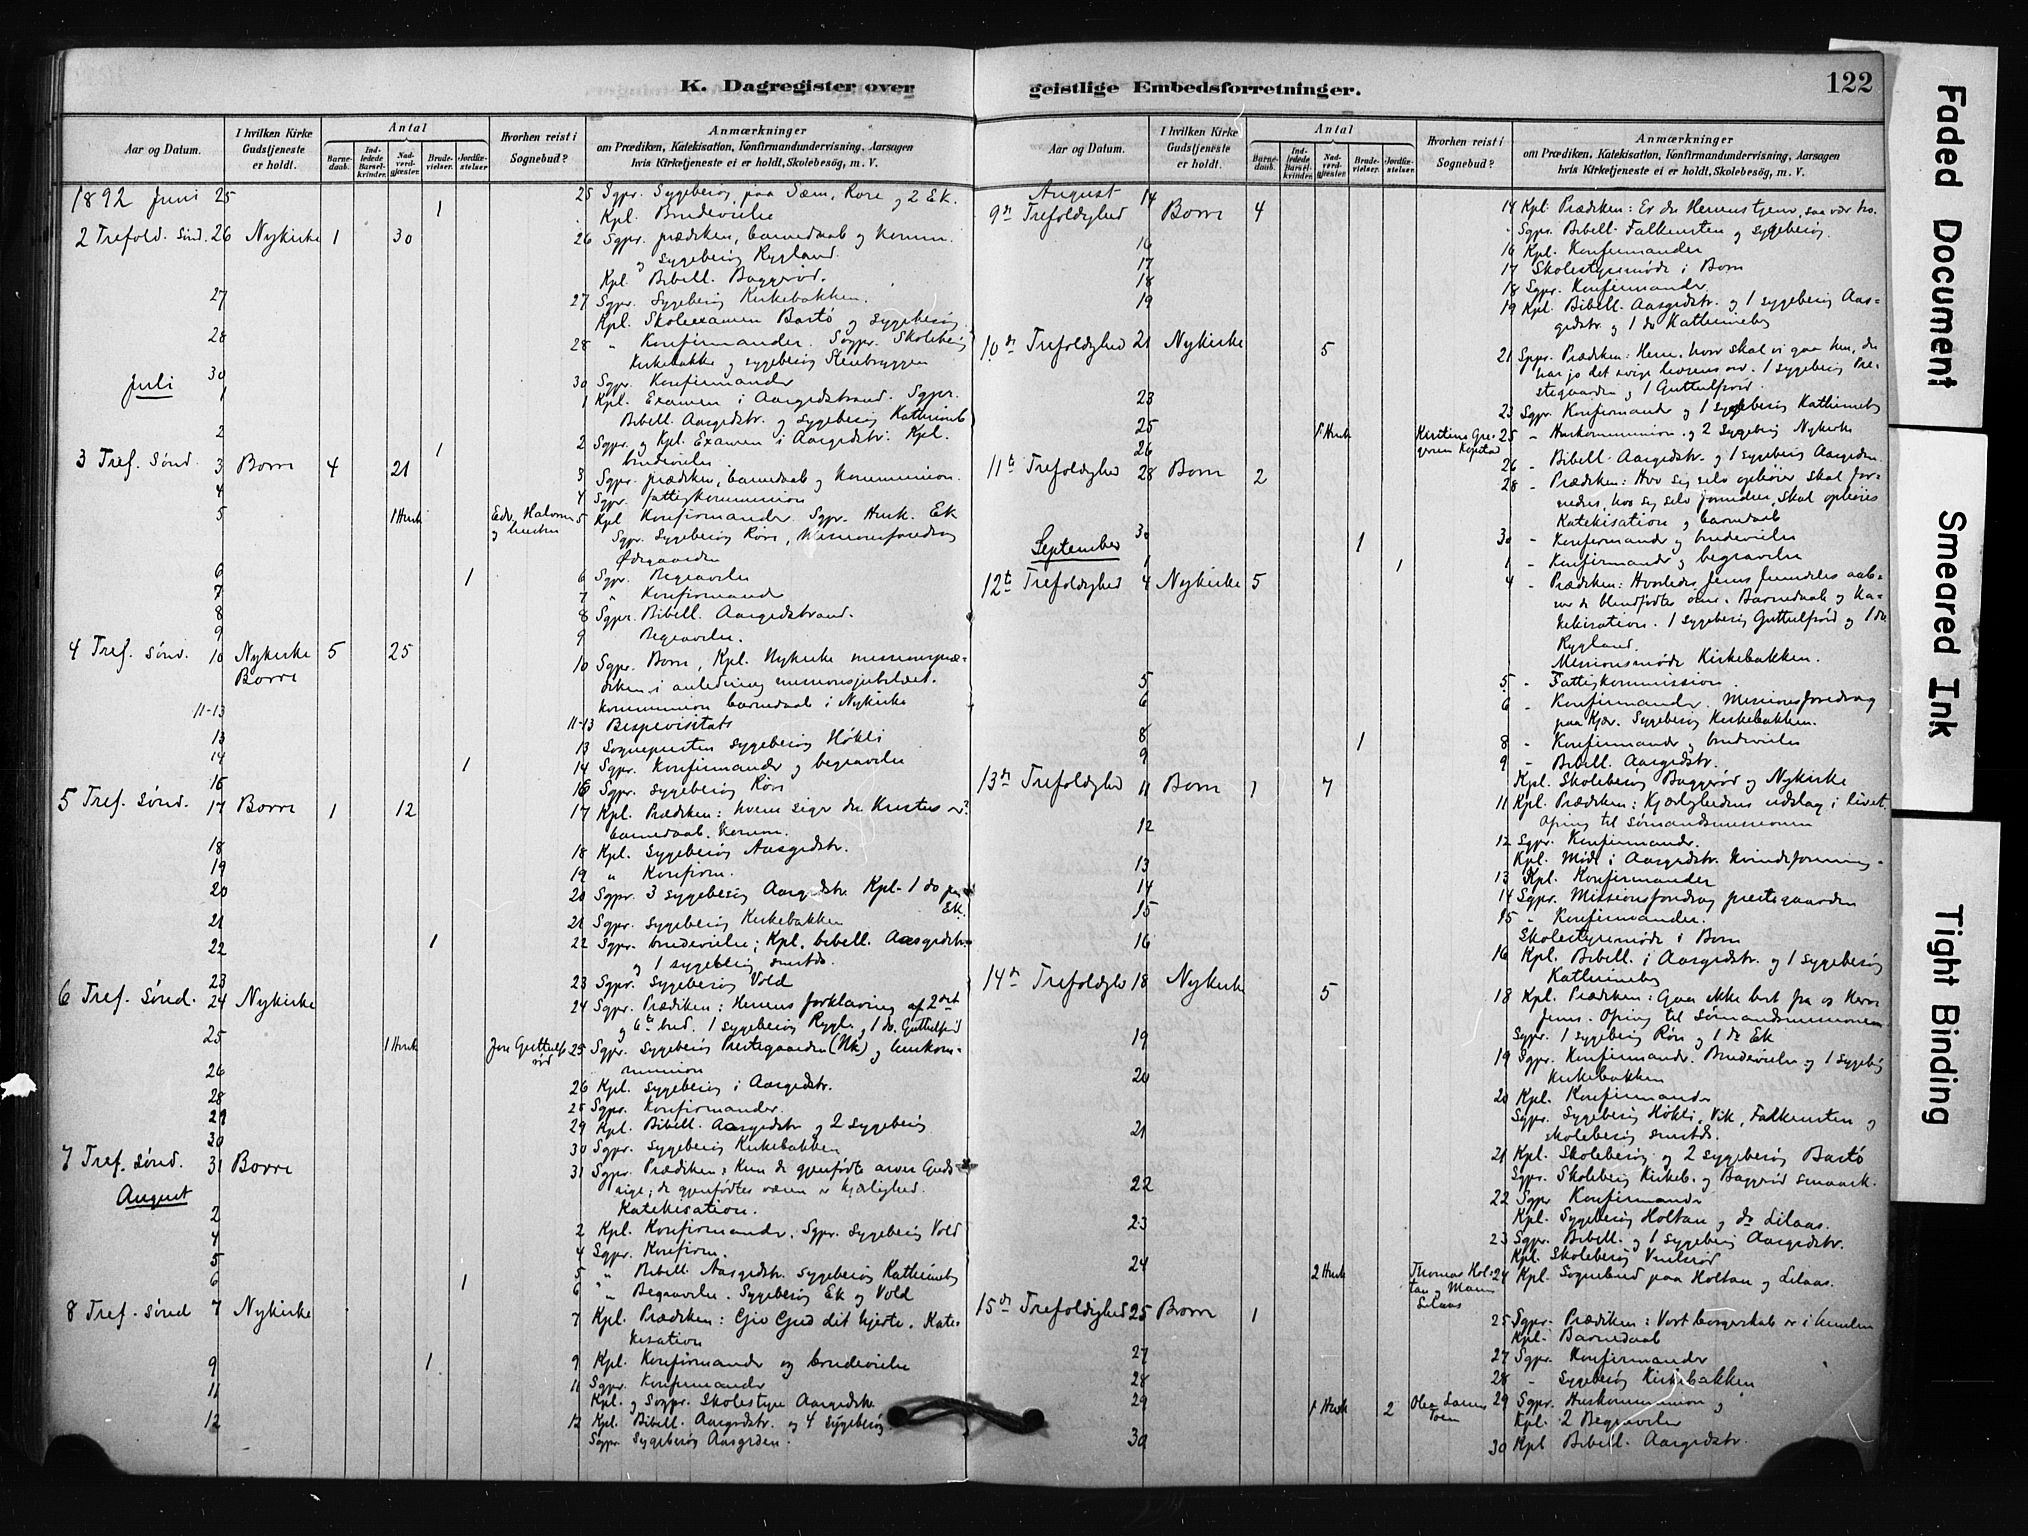 K. Dagregister over
Aar og Datum.
I hvilken Kirke Gudstjeneste er holdt.
Antal
Barne-daab.
Ind-ledede Barsel-kvinder.
Nad-verd-gjæster.
Brude-vielser.
Jordfæ-stelser
Hvorhen reist i Sognebud?
Anmærkninger
om Prædiken, Katekisation, Konfirmandundervisning, Aarsagen
hvis Kirketjeneste ei er holdt, Skolebesög, m. V.
1892 Juni 25 1 25 Sgpr. Sygebesøg paa Sem, Rore og 2 Ek.
Kpl. Brudevielse
2 Trefold. Sønd. 26 Nykirke 1 30 26 Sgpr. prædiken, barnedaab og komm.
og sygebesøg Rygland.
Kpl. Bibell. Baggerød.
27 27 Sgpr. Sygebesøg Kirkebakken.
Kpl. Skoleexamen Bastø og sygebesøg
28 28 " Konfirmander. Sogpr. Skolebesøg
Kirkebakke og sygebesøg Stenbryggen
30 30 Sgpr. Konfirmander
Juli 1 1 Kpl. Examen i Aasgedstrand. Sgpr.
Bibell. Aasgedstr. og sygebesøg Kathrineb
2 1 2 Sgpr. og Kpl. Examen i Aasgedstr. Kpl.
brudevielse
3 Tref. Sønd. 3 Borre 4 21 3 Sgpr. prædiken, barnedaab og kommunion.
4 4 Sgpr. fattigkommission
5 1 Husk Edv. Halvorsen og hustru 5 Kpl. Konfirmander. Sgpr. Husk. Ek
Sgpr. Sygebesøg Røre, Missionsforedrag
Ødegaarden
6 1 6 Sgpr. Begravelse
7 7 " Konfirmander
8 8 Sgpr. Bibell. Aasgedstrand.
9 9 Begravelse.
4 Tref. Sønd. 10 Nykirke 5 25 10 Sgpr. Borre, Kpl. Nykirke missionspræ-
Borre diken i anledning missionsjubilæet.
kommunion barnedaab i Nykirke
11-13 11-13 Bispevisitats
13 13 Sognepresten sygebesøg Høkli
14 1 14 Sgpr. Konfirmander og begravelse
16 16 Sgpr. sygebesøg Røre
5 Tref. Sønd. 17 Borre 1 12 17 Kpl. Prædiken: hvem siger du Kristus er?
barnedaab. komm.
18 18 Kpl. sygebesøg Aasgedstr.
19 19 " Konfirm.
20 20 Sgpr. 3 sygebesøg Aasgedstr. Kpl. 1 do paa
Ek.
21 21 Sgpr. sygebesøg Kirkebakken
22 1 22 Sgpr. brudevielse; Kpl. bibell. Aasgedstr.
og 1 sygebesøg smstds.
23 23 Sgpr. Sygebesøg Vold
6 Tref. Sønd. 24 Nykirke 24 Sgpr. Prædiken: Herrens forklaring af 2det
og 6te bud. 1 sygebesøg Rygl. og 1 do. Guttulfsrød
25 1 Husk Jon Guttulfsrød 25 Sgpr. sygebesøg Prestegaarden (Nk) og huskom-
munion
26 26 Kpl. sygebesøg i Aasgedstr.
28 28 Sgpr. Konfirmander.
29 29 Kpl. Bibell. Aasgedstr. og 2 sygebesøg
30 30 Sgpr. sygebesøg Kirkebakken
7 Tref. Sønd. 31 Borre 31 Sgpr. Prædiken: Kun de gjenfødte arver Guds
rige; de gjenfødtes væsen er kjærlighed.
Katekisation.
August
2 2 Kpl. Konfirmander. Sgpr. Sygebesøg Vold
4 4 Sgpr. Konfirm.
5 5 " Bibell. Aasgedstr. sygebesøg Kathrineb
6 1 6 " Begravelse. Sygebesøg Ek og Vold
8 Tref. Sønd 7 Nykirke 7 Kpl. Prædiken: Giv Gud dit hjerte. Kate-
kisation
9 1 9 Kpl. Konfirmander og brudevielse
11 11 Sgpr. Konfirmander
Kpl. og Sogpr. Skolestyre Aasgedstr.
12 12 Kpl. Bibell. Aasgedstr. og 4 sygebesøg
Sgpr. Sygebesøg Aasgården.
geistlige Embedsforretninger.
122
Aar og Datum.
I hvilken Kirke Gudstjeneste er holdt.
Antal
Barne-daab.
Ind-ledede Barsel-kvinder.
Nad-verd-gjæster.
Brude-vielser.
Jordfæ-stelser
Hvorhen reist i Sognebud?
Anmærkninger
om Prædiken, Katekisation, Konfirmandundervisning, Aarsagen
hvis Kirketjeneste ei er holdt, Skolebesög, m. V.
August
9de Trefoldighed 14 Borre 4 14 Kpl. Prædiken: Er du Herrens tjener, saa vær tro.
Sgpr. Bibell. Falkensten og sygebesøg.
16 16 Kpl. Konfirmander
17 17 Skolestyresmøde i Borre
18 18 Sgpr. Konfirmander
19 19 Kpl. Bibell. Aasgedstr. og 1 sygebesøg Aas-
gedstr og 1 do Kathrineb
10de Trefoldighed 21 Nykirke 5 21 Sgpr. Prædiken: Herre, hvor skal vi gaa hen, du
har jo det evige livsens ord. 1 sygebesøg Pre-
stegaarden og 1 Guttulfsrød.
23 23 Sgpr. Konfirmander og 1 sygebesøg Kathrineb
25 1 Husk Kristine Gregersen Kopstad 25 - Huskommunion og 2 sygebesøg Nykirke
26 26 - Bibell. Aasgedstr. og 1 sygebesøg Aasgården
11te Trefoldighed 28 Borre 2 28 - Prædiken: Hvo sig selv ophøier skal for-
nedres, hvo sig selv fornedrer, skal ophøies
Katekisation og barnedaab
30 1 30 - Konfirmander og brudevielse
September 1 1 1 - Konfirmander og begravelse
12te Trefoldighed 4 Nykirke 5 4 - Prædiken: Hvorledes Jesus fremdeles aab-
ner de blindfødtes øine. Barnedaab og Ka-
tekisation. 1 sygebesøg Guttulfsrød og 1 do
Rygland.
Missionsmøde Kirkebakken.
5 5 - Fattigkommission.
6 6 - Konfirmander. Missionsforedrag
paa Kjær. Sygebesøg Kirkebakken.
8 1 8 - Konfirmander og brudevielse
9 9 - Bibell. Aasgedstr.
Kpl. Skolebesøg Baggerød og Nykirke
13de Trefoldighed 11 Borre 1 7 11 Kpl. Prædiken: Kjærlighedens udslag i livet.
Ofring til sømandsmissionen
12 12 Sgpr. Konfirmander.
Kpl. Møde i Aasgedstr. Kvindeforening.
13 13 Kpl. Konfirmander
14 14 Sgpr. Missionsforedrag prestegaarden
15 15 " Konfirmander.
Skolestyresmøde i Borre
16 16 Kpl. Bibell. i Aasgedstr. og 1 sygebesøg
Kathrineb
14de Trefoldighed 18 Nykirke 5 18 Kpl. Prædiken: Gaa ikke bort fra os Herre
Jesus. Ofring til Sømandsmissionen
Sgpr. 1 sygebesøg Røre og 1 do Ek
19 19 Sgpr. Konfirmander. Brudevielse og 1 sygebesøg
Kirkebakken
20 20 Kpl. Konfirmander
Sgpr. Sygebesøg Høkli, Vik, Falkensten og
skolebesøg smstds.
21 21 Kpl. Skolebesøg og 2 sygebesøg Bastø
Sgpr. Skolebesøg Kirkeb. og Baggerød smaask.
22 22 Sgpr Konfirmander
Kpl. Sygebesøg Holtan og do Lilaas.
23 23 Sgpr. Bibell. og 1 sygebesøg Aasgedstr.
Kpl. Skolebesøg
24 2 Husk Thomas Holtan og Lilaas 24 Kpl. Sognebud paa Holtan og Lilaas.
15de Trefoldighed 25 Borre 1 25 Sgpr. Prædiken: Vort borgerskab er i himlen
Kpl. Barnedaab
27 27 Sgpr. Konfirmander
28 28 - Sygebesøg Kirkebakken
29 1 Husk 2 29 Sgpr. Huskommunion og
Kpl. 2 Begravelser
30 30 Kpl Bibell. Aasgedstr.
Faded Document
Smeared Ink
Tight Binding